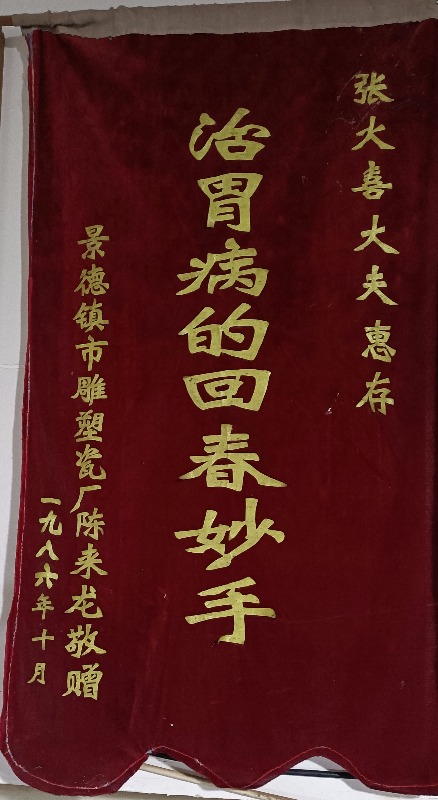 张大喜大夫惠存
治胃病的回春妙手
景德镇市雕塑瓷厂陈来龙敬赠
一九八六年十月